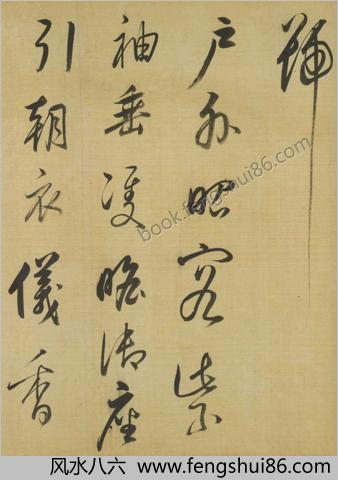 號
户外昭容紫
袖垂雙瞻御座
引朝衣儀香
book.fengshui86.com
风水八六 www.fengshui86.com